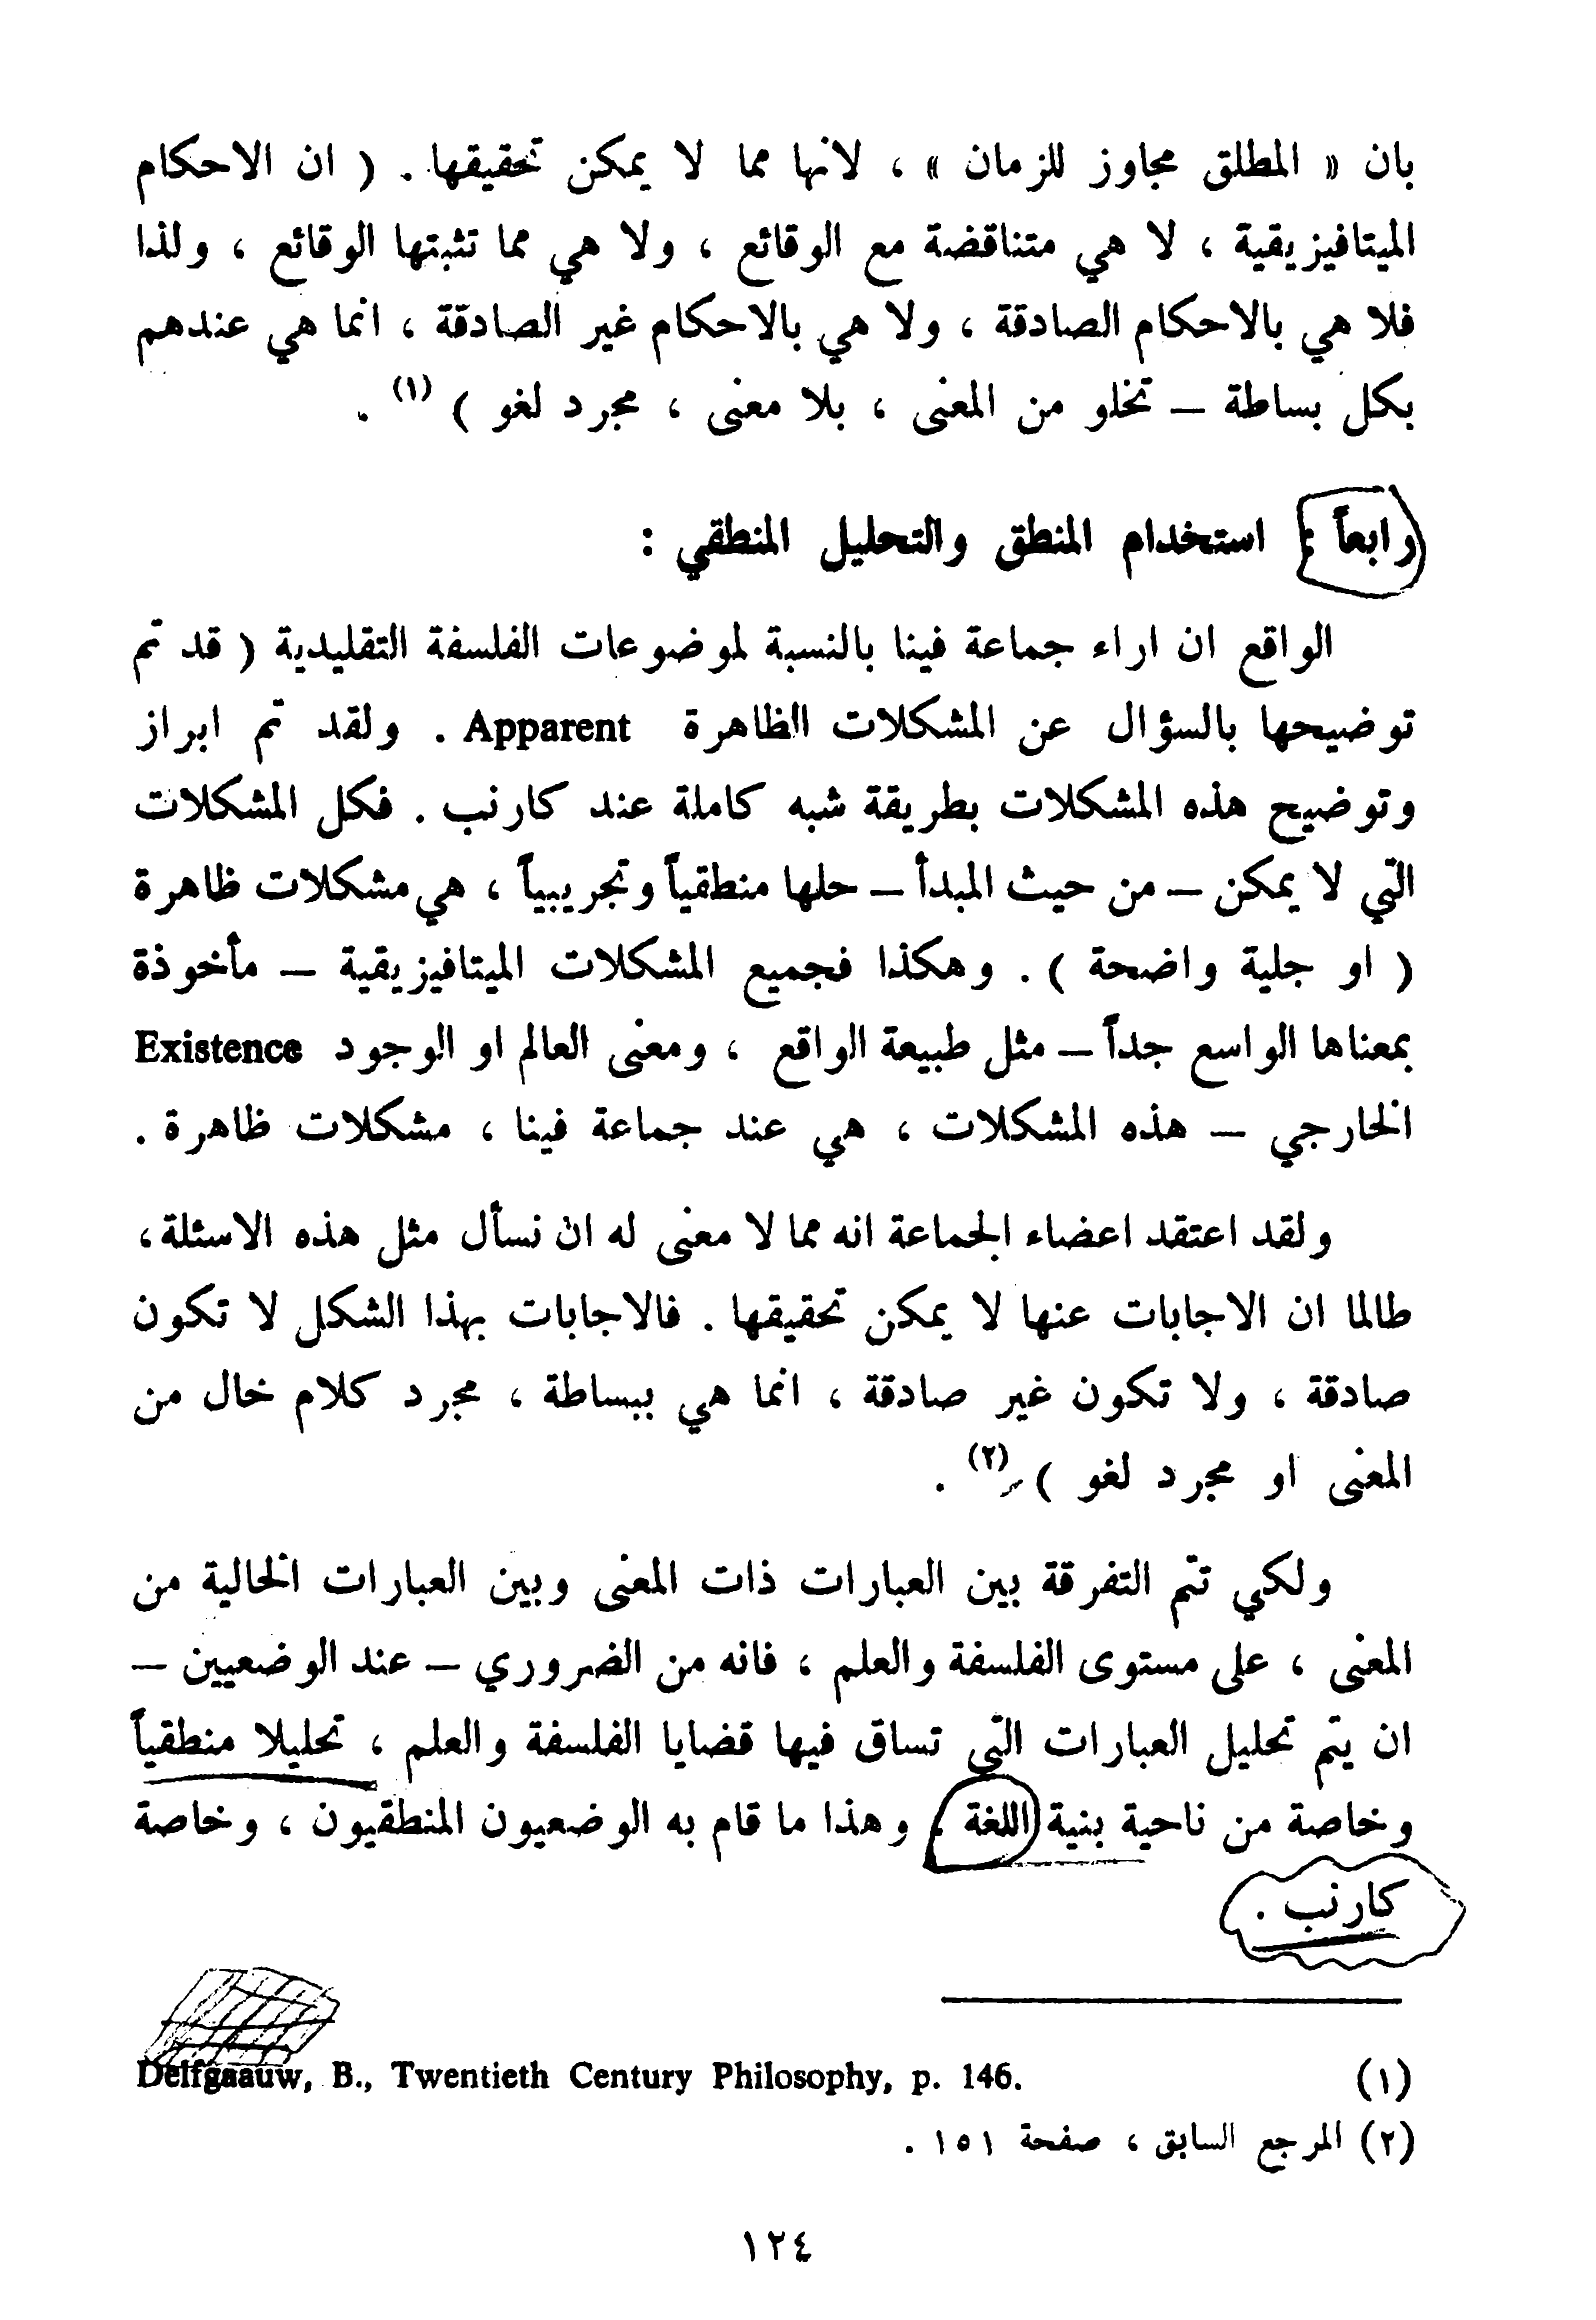 بان « المطلق مجاوز للزمان » ، لانها مما لا يمكن تحقيقها . ( ان الاحكام
الميتافيزيقية ، لا هي متناقضة مع الوقائع ، ولا هي مما تثبتها الوقائع ، ولذا
فلا هي بالاحكام الصادقة ، ولا هي بالاحكام غير الصادقة ، انما هي عندهم
بكل بساطة – تخلو من المعنى ، بلا معنى ، مجرد لغو ) (١) .
رابعاً : استخدام المنطق والتحليل المنطقي :
الواقع ان اراء جماعة فينا بالنسبة لموضوعات الفلسفة التقليدية ( قد تم
توضيحها بالسؤال عن المشكلات الظاهرة Apparent . ولقد تم ابراز
وتوضيح هذه المشكلات بطريقة شبه كاملة عند كارنب . فكل المشكلات
التي لا يمكن – من حيث المبدأ – حلها منطقياً وتجريبياً ، هي مشكلات ظاهرة
( او جلية واضحة ) . وهكذا فجميع المشكلات الميتافيزيقية – مأخوذة
بمعناها الواسع جداً – مثل طبيعة الواقع ، ومعنى العالم او الوجود Existence
الخارجي – هذه المشكلات ، هي عند جماعة فينا ، مشكلات ظاهرة .
ولقد اعتقد اعضاء الجماعة انه مما لا معنى له ان نسأل مثل هذه الاسئلة،
طالما ان الاجابات عنها لا يمكن تحقيقها . فالاجابات بهذا الشكل لا تكون
صادقة ، ولا تكون غير صادقة ، انما هي ببساطة ، مجرد كلام خال من
المعنى او مجرد لغو ) (٢) .
ولكي تتم التفرقة بين العبارات ذات المعنى وبين العبارات الخالية من
المعنى ، على مستوى الفلسفة والعلم ، فانه من الضروري – عند الوضعيين –
ان يتم تحليل العبارات التي تساق فيها قضايا الفلسفة والعلم ، تحليلا منطقياً
وخاصة من ناحية بنية اللغة . وهذا ما قام به الوضعيون المنطقيون ، وخاصة
كارنب .
(١) Delfgaauw, B., Twentieth Century Philosophy, p. 146.
(٢) المرجع السابق ، صفحة ١٥١ .
١٢٤